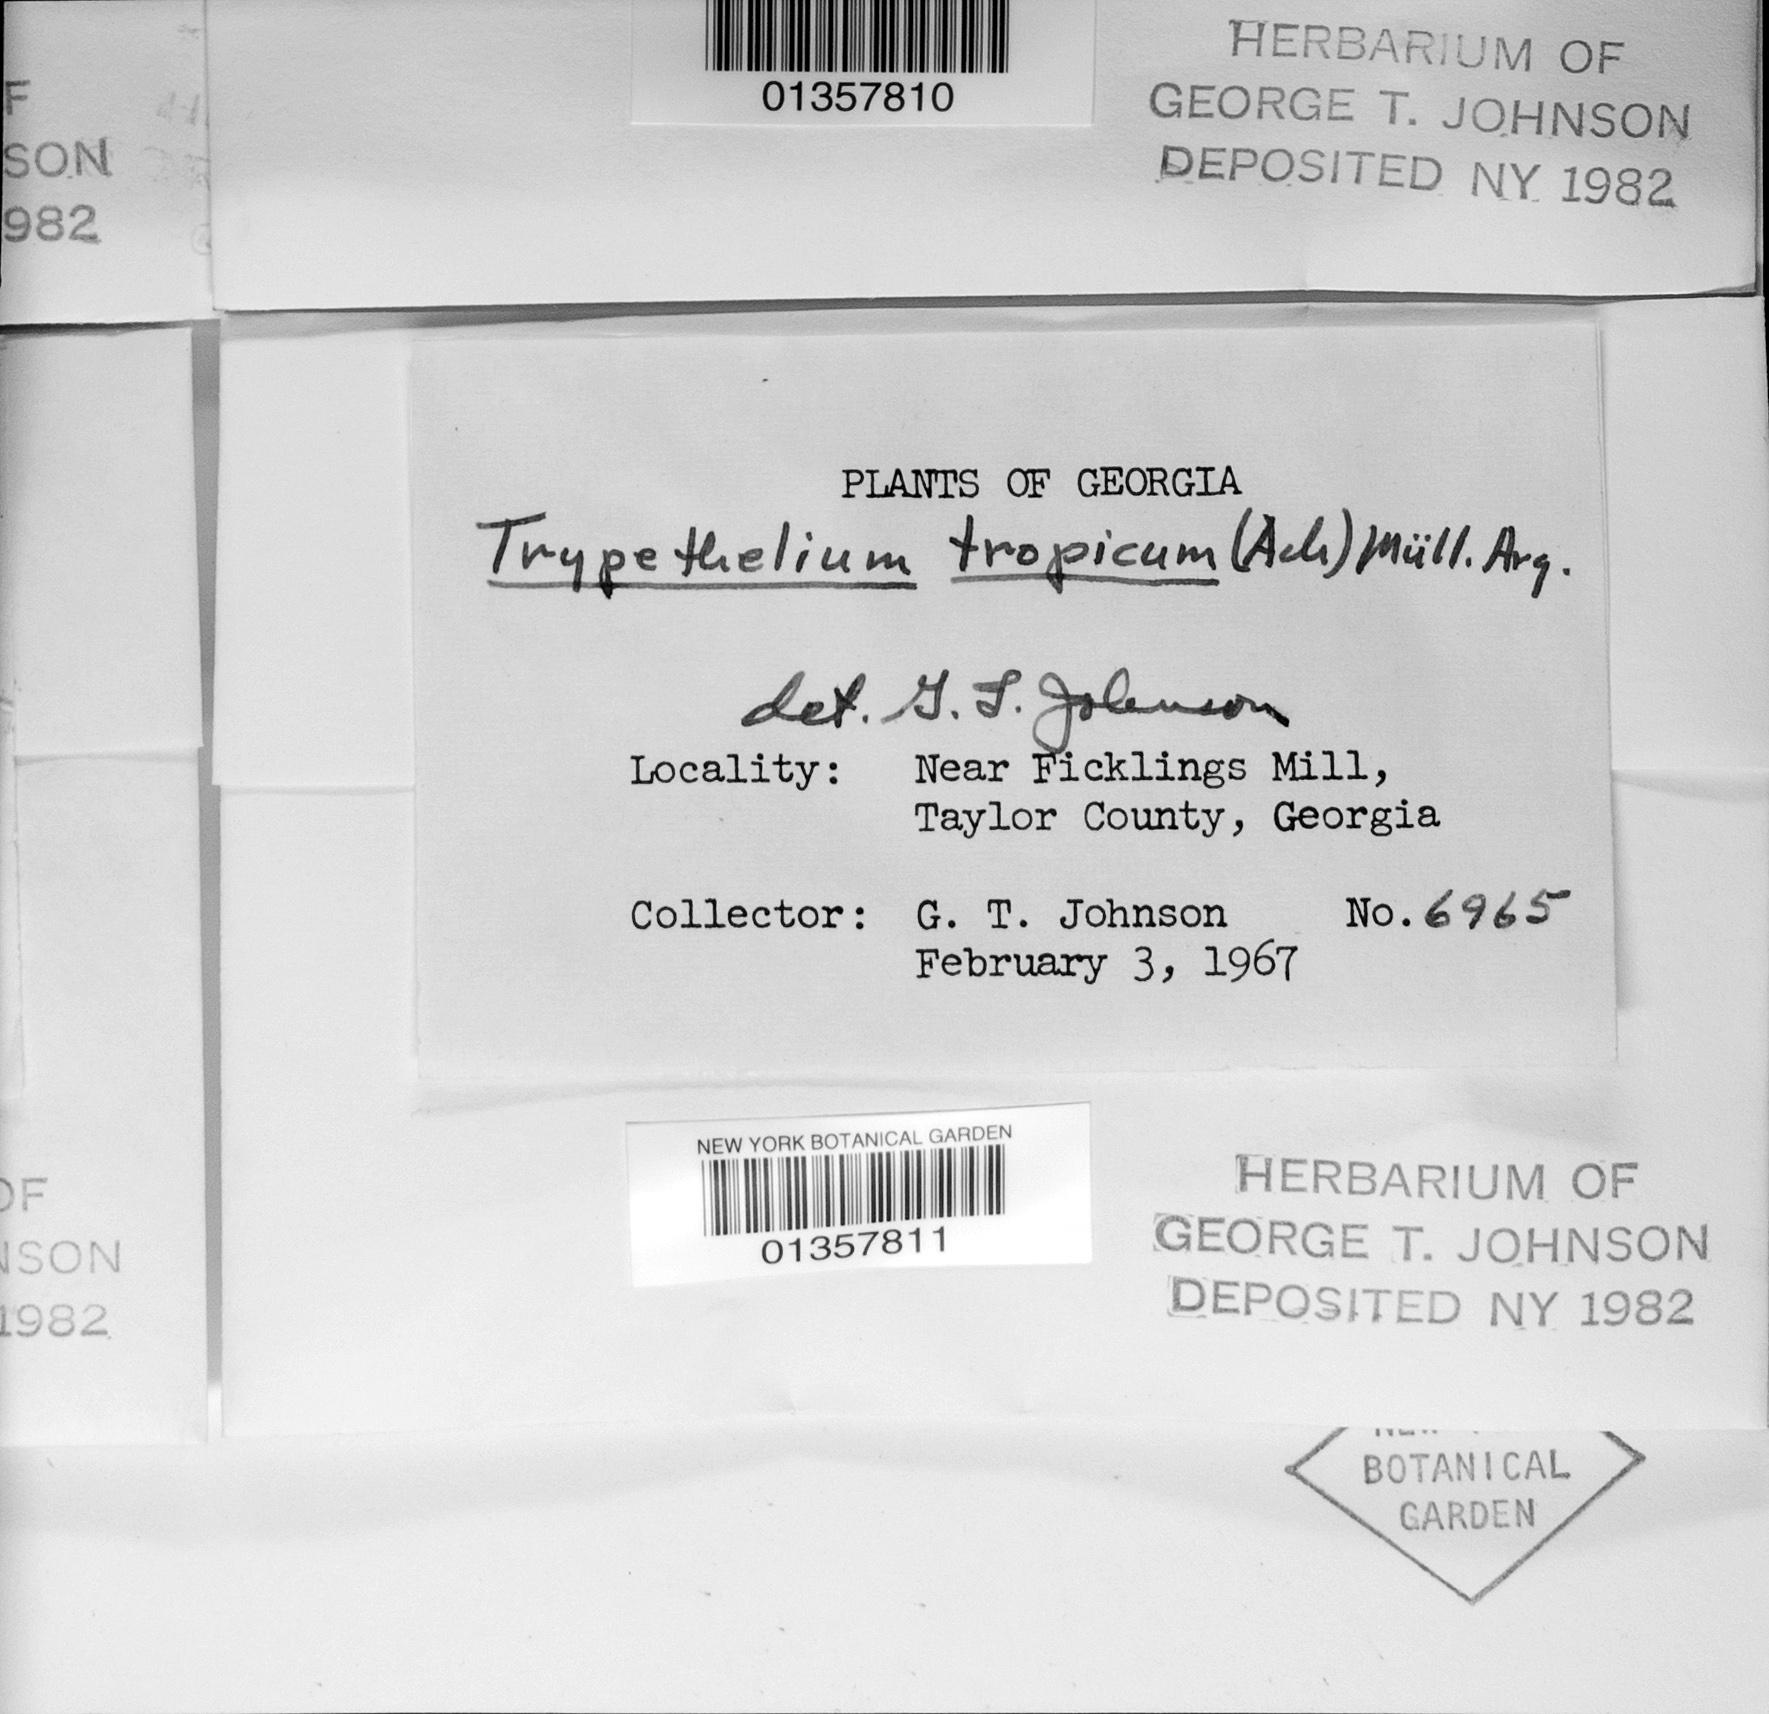 F
SON
982
01357810
HERBARIUM OF
GEORGE T. JOHNSON
DEPOSITED NY 1982
PLANTS OF GEORGIA
Trypethelium tropicum (Ach) Müll. Arg.
det. G. T. Johnson
Locality: Near Ficklings Mill,
Taylor County, Georgia
Collector: G. T. Johnson No. 6965
February 3, 1967
NEW YORK BOTANICAL GARDEN
01357811
HERBARIUM OF
GEORGE T. JOHNSON
DEPOSITED NY 1982
OF
NSON
1982
BOTANICAL
GARDEN